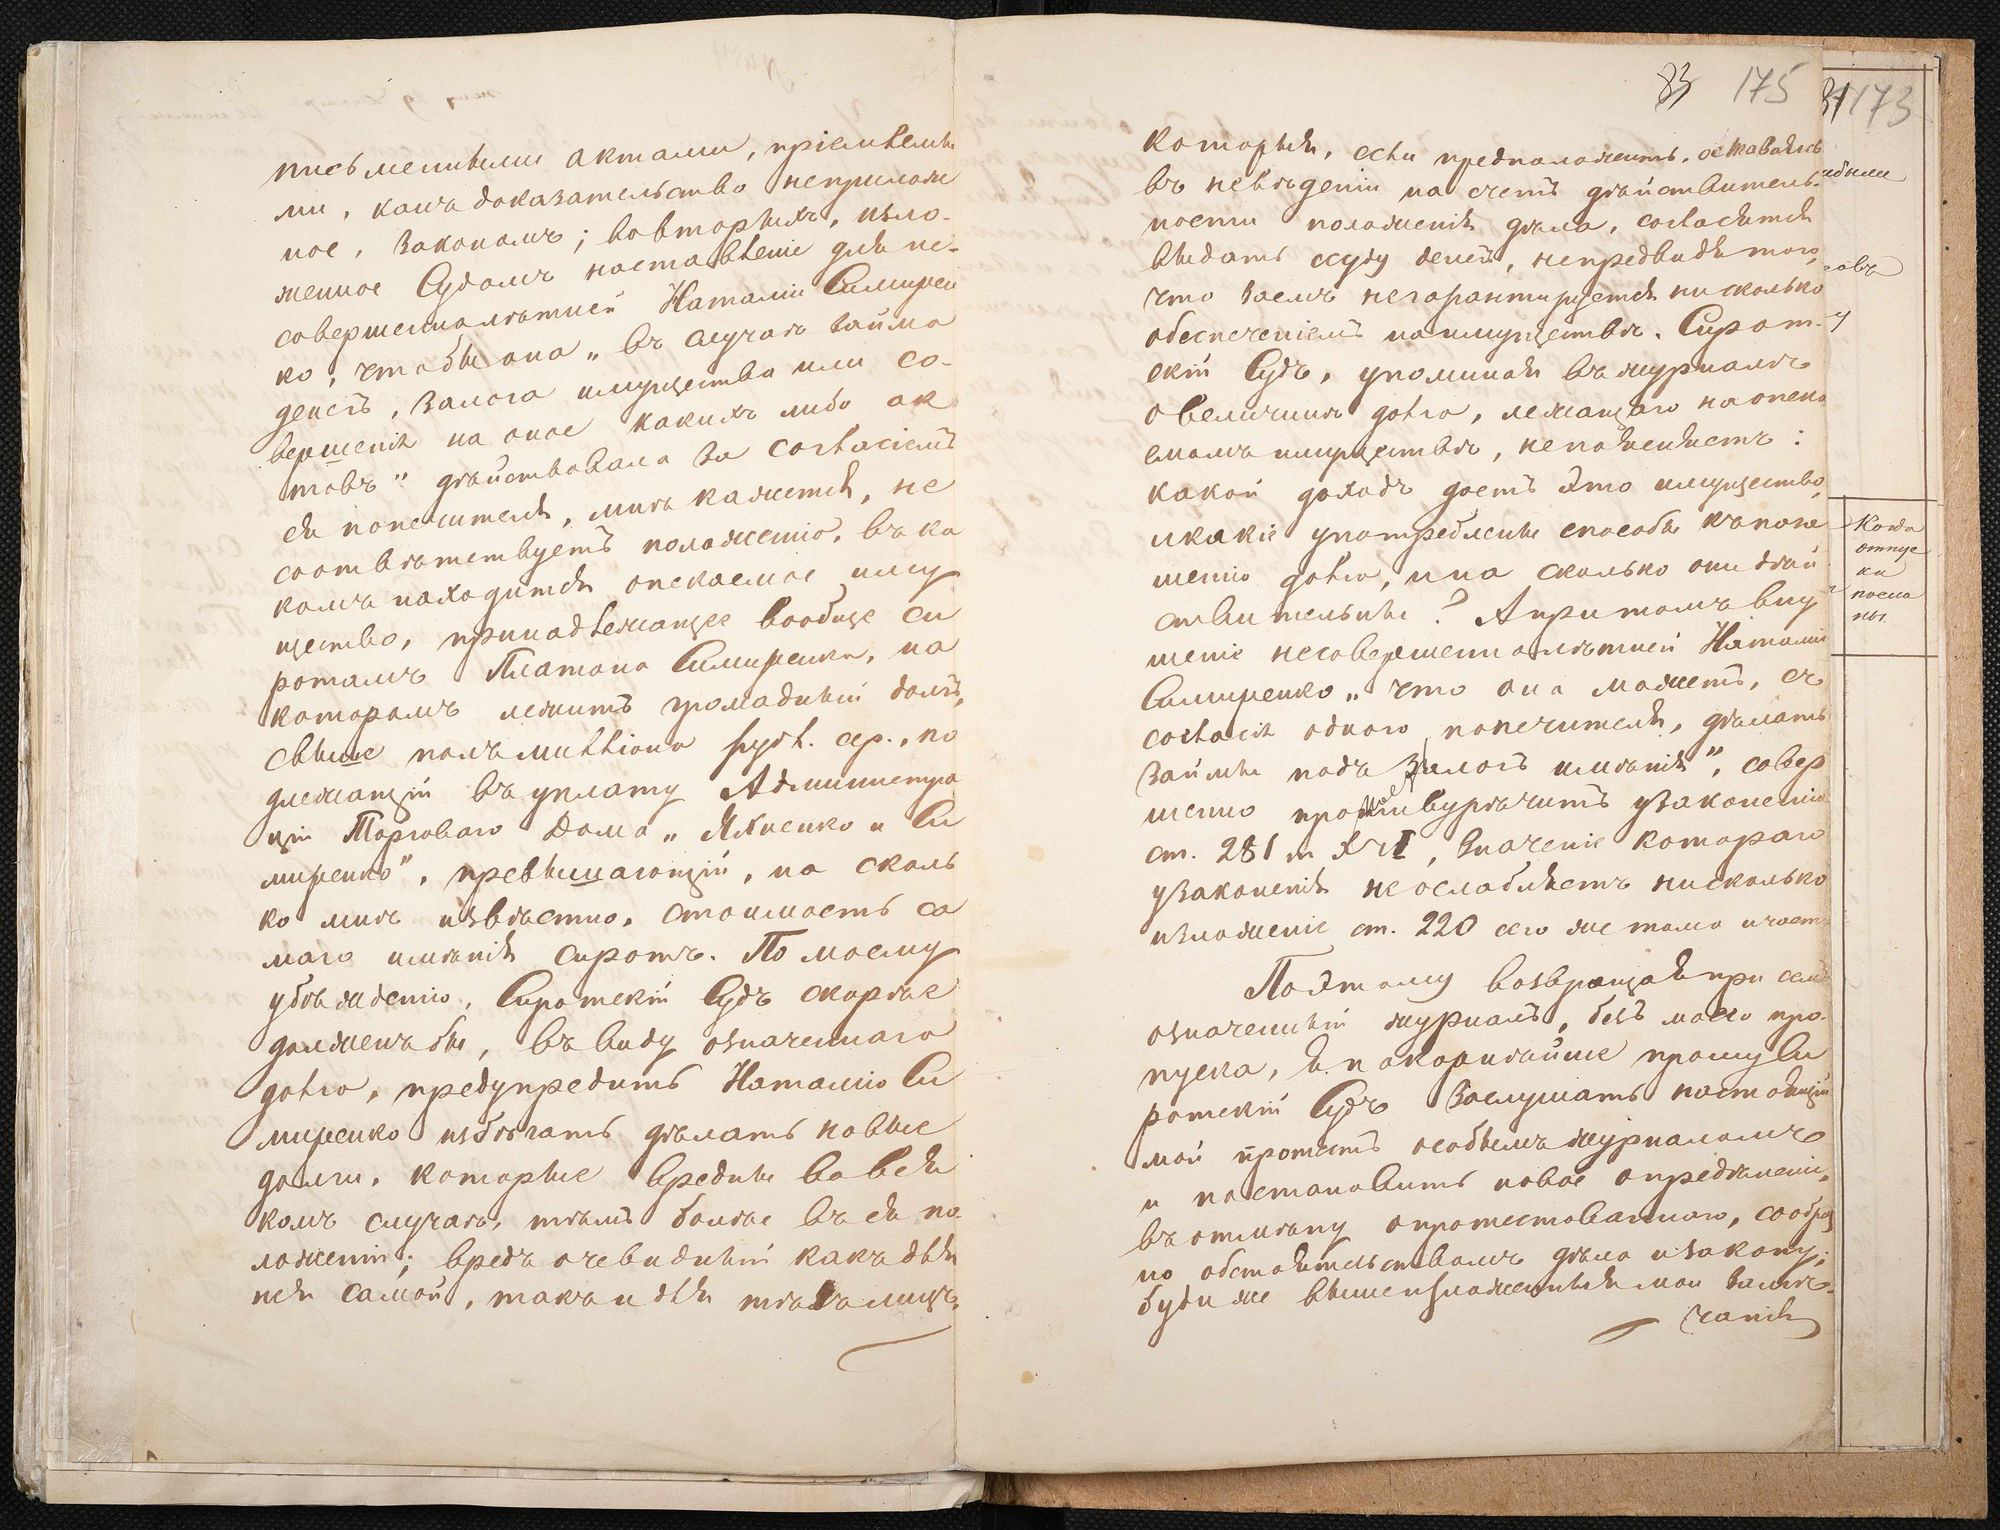 письменными актами, пріемлемы
ми, какъ доказательство непрелож
ное, закономъ; вовторыхъ, изло-
женное Судомъ наставленіе для не-
совершеннолѣтней Наталіи Симирен
ко, чтобы она „въ случаѣ займа
денегъ, залога имущества или со-
вершенія на оное какихъ либо ак
товъ" дѣйствовала за согласіемъ
ея попечителя, мнѣ кажется, не
соотвѣтствуетъ положенію, въ ка
комъ находится опекаемое иму
щество, принадлежащее вообще си
ротамъ Платона Симиренка, на
которомъ лежитъ громадный долгъ,
свыше полъ милліона рубл. сер., по
длежащій въ уплату Администра
ціи Торговаго Дома „Яхненко и Си
миренко", превышающій, на сколь
ко мнѣ извѣстно, стоимость са
маго имѣнія сиротъ. По моему
убѣжденію, Сиротскій Судъ скорѣе
долженъ бы, въ виду означеннаго
долга, предупредить Наталію Си
миренко избѣгать дѣлать новые
долги, которые вредны во вся
комъ случаѣ, тѣмъ болѣе въ ея по
ложеніи; вредъ очевидный какъ для
нея самой, такъ и для тѣхъ лицъ,
83 175
которыя, если предположить, оставаясь
въ невѣденіи на счетъ дѣйствитель-
ности положенія дѣла, согласятся
выдать ссуду денегъ, непредвидя того,
что заемъ негарантируется нисколько
обеспеченіемъ на имуществѣ. Сирот-
скій Судъ, упоминая въ журналѣ
о величинѣ долга, лежащаго на опека
емомъ имуществѣ, непоясняетъ:
какой доходъ даетъ это имущество,
и какіе употреблены способы къ пога
шенію долга, и на сколько они дѣй
ствительны? А притомъ вну
шеніе несовершеннолѣтней Наталіи
Симиренко „что она можетъ, съ
согласія одного попечителя, дѣлать
займы подъ залогъ имѣнія", совер
шенно противурѣчитъ узаконенію
ст. 281 т X ч I, значеніе котораго
узаконенія не ослабляетъ нисколько
изложеніе ст. 220 сего же тома и части
Поэтому возвращая при семъ
означенный журналъ, безъ моего про-
пуска, я покорнѣйше прошу Си
ротскій Судъ заслушать настоящій
мой протестъ особымъ журналомъ
и постановить новое опредѣленіе,
въ отмѣну опротестованнаго, сообраз
но обстоятельствамъ дѣла и закону;
буди же вышеизложенныя мои замѣ-
чанія
31 173
Когда
отпус
ки
посла
ны.